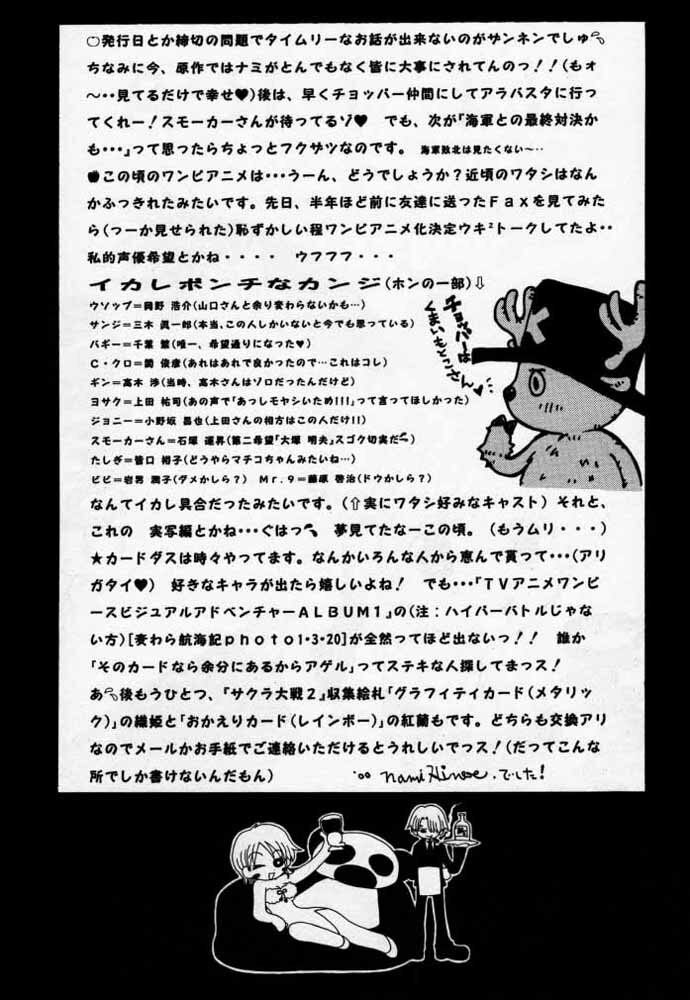 ○発行日とか締切の問題でタイムリーなお話が出来ないのがザンネンでしゅ
ちなみに今、原作ではナミがとんでもなく皆に大事にされてんのっ！！(もォ
～‥見てるだけで幸せ♥)後は、早くチョッパー仲間にしてアラバスタに行っ
てくれー！スモーカーさんが待ってるゾ♥ でも、次が『海軍との最終対決か
も‥･』って思ったらちょっとフクザツなのです。 海軍敗北は見たくない～‥
この頃のワンピアニメは･･･うーん、どうでしょうか？近頃のワタシはなん
かふっきれたみたいです。先日、半年ほど前に友達に送ったＦａｘを見てみた
ら(つーか見せられた)恥ずかしい程ワンピアニメ化決定ウキ²トークしてたよ‥
私的声優希望とかね････ ウフフフ･･･
イカレポンチなカンジ(ホンの一部)⇩
ウソップ＝岡野 浩介(山口さんと余り変わらないかも…)
サンジ＝三木 眞一郎(本当、この人しかいないと今でも思っている)
バギー＝千葉 繁(唯一、希望通りになった♥)
Ｃ・クロ＝関 俊彦(あれはあれで良かったので…これはコレ)
ギン＝高木 渉(当時、高木さんはゾロだったんだけど)
ヨサク＝上田 祐司(あの声で「あっしモヤシいため!!!」って言ってほしかった)
ジョニー＝小野坂 昌也(上田さんの相方はこの人だけ!!)
スモーカーさん＝石塚 運昇(第二希望「大塚 明夫」スゴク切実だ～)
たしぎ＝皆口 裕子(どうやらマチコちゃんみたいね…)
ビビ＝岩男 潤子(ダメかしら？) Ｍｒ．９＝藤原 啓治(ドウかしら？)
チョッパーは
くまいもとこさん♥
なんてイカレ具合だったみたいです。(⇧実にワタシ好みなキャスト) それと、
これの 実写編とかね･･･ぐはっ 夢見てたなーこの頃。(もうムリ･･･)
★カードダスは時々やってます。なんかいろんな人から恵んで貰って･･･(アリ
ガタイ♥) 好きなキャラが出たら嬉しいよね！ でも･･･「ＴＶアニメワンピ
ースビジュアルアドベンチャーＡＬＢＵＭ１」の(注：ハイパーバトルじゃな
い方)[麦わら航海記ｐｈｏｔｏ1･3･20]が全然ってほど出ないっ！！ 誰か
「そのカードなら余分にあるからアゲル」ってステキな人探してまっス！
あ 後もうひとつ、『サクラ大戦２』収集絵札「グラフィティカード(メタリッ
ク)」の織姫と「おかえりカード(レインボー)」の紅蘭もです。どちらも交換アリ
なのでメールかお手紙でご連絡いただけるとうれしいでっス！(だってこんな
所でしか書けないんだもん)
nami Hinose.でした！